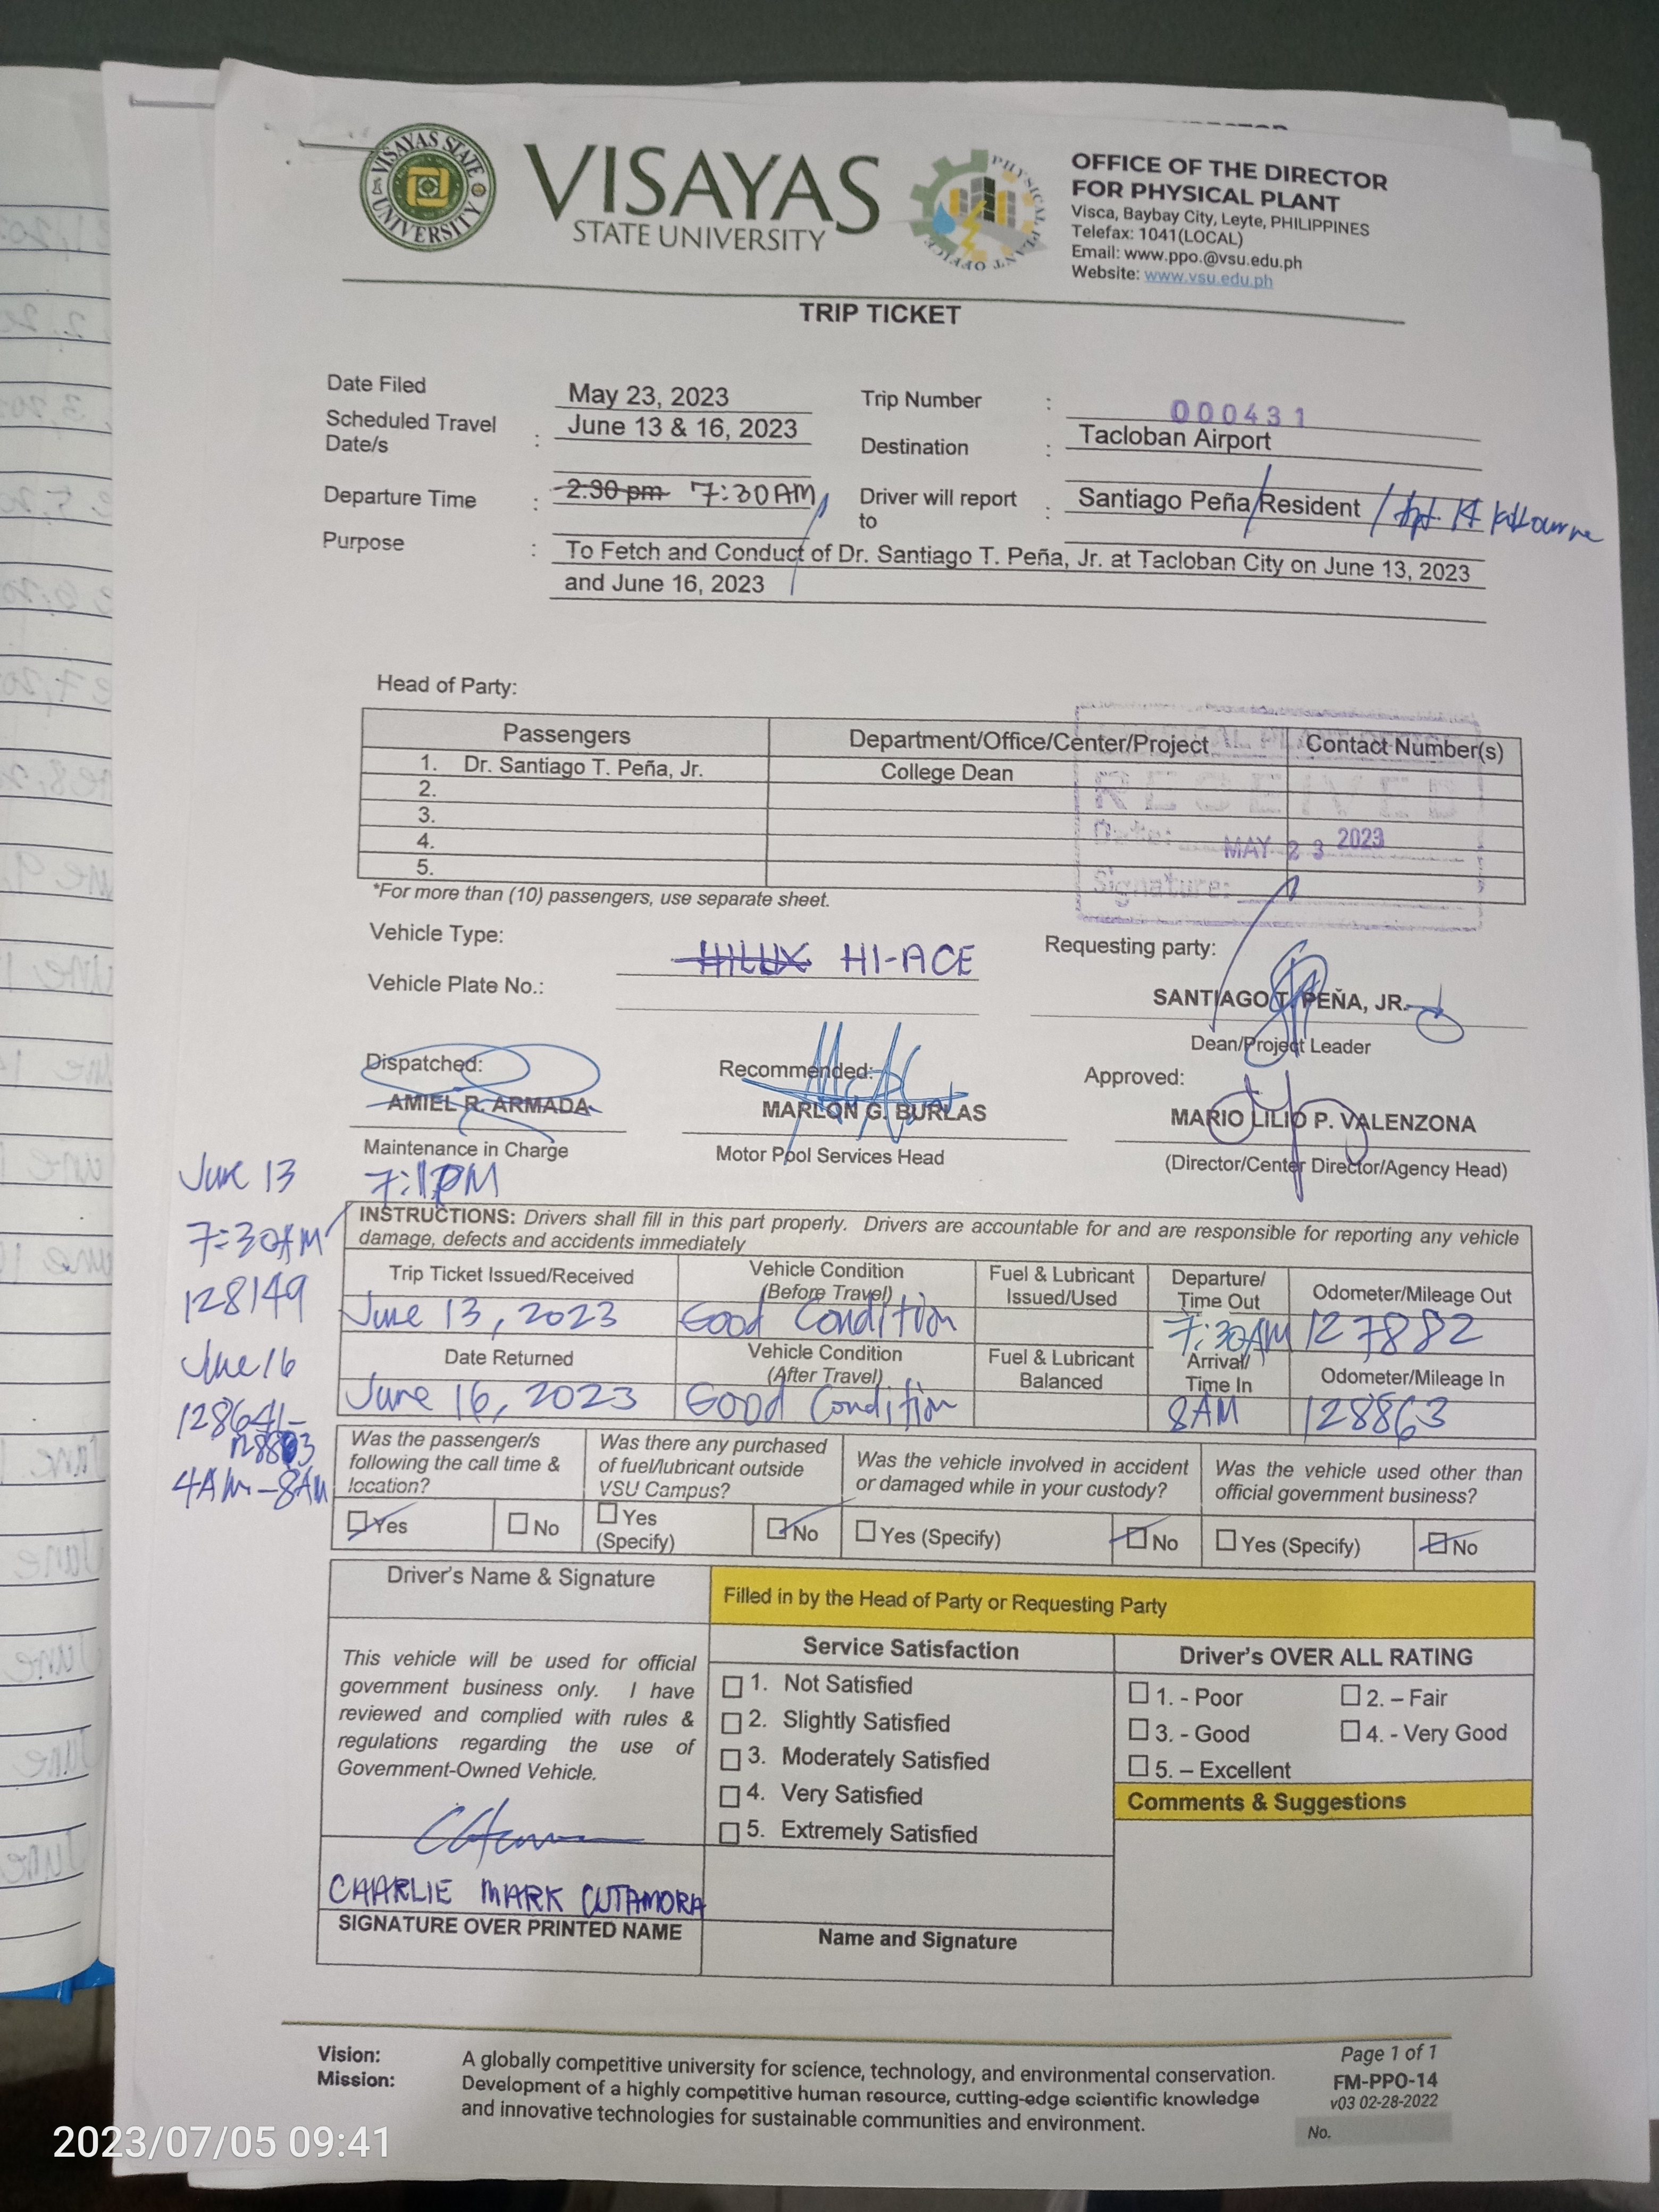 VISAYAS STATE UNIVERSITY
VISAYAS
STATE UNIVERSITY
PHYSICAL PLANT OFFICE
OFFICE OF THE DIRECTOR
FOR PHYSICAL PLANT
Visca, Baybay City, Leyte, PHILIPPINES
Telefax: 1041(LOCAL)
Email: www.ppo.@vsu.edu.ph
Website: www.vsu.edu.ph
TRIP TICKET
Date Filed May 23, 2023 Trip Number : 000431
Scheduled Travel Date/s : June 13 & 16, 2023 Destination : Tacloban Airport
Departure Time : 2:30 pm 7:30AM Driver will report to : Santiago Peña/Resident /
Purpose : To Fetch and Conduct of Dr. Santiago T. Peña, Jr. at Tacloban City on June 13, 2023
and June 16, 2023
Head of Party:
Passengers Department/Office/Center/Project Contact Number(s)
1. Dr. Santiago T. Peña, Jr. College Dean
2.
3.
4.
5.
RECEIVED
Date: MAY 23 2023
Signature:
*For more than (10) passengers, use separate sheet.
Vehicle Type: HILUX HI-ACE Requesting party:
Vehicle Plate No.: SANTIAGO T. PEÑA, JR.
Dean/Project Leader
Dispatched: Recommended: Approved:
AMIEL R. ARMADA MARLON G. BURLAS MARIO LILIO P. VALENZONA
Maintenance in Charge Motor Pool Services Head (Director/Center Director/Agency Head)
June 13 7:11PM
7:30AM
128149
June 16
128641-
128863
4AM-8AM
INSTRUCTIONS: Drivers shall fill in this part properly. Drivers are accountable for and are responsible for reporting any vehicle
damage, defects and accidents immediately
Trip Ticket Issued/Received Vehicle Condition (Before Travel) Fuel & Lubricant Issued/Used Departure/ Time Out Odometer/Mileage Out
June 13, 2023 Good Condition 7:30AM 127882
Date Returned Vehicle Condition (After Travel) Fuel & Lubricant Balanced Arrival/ Time In Odometer/Mileage In
June 16, 2023 Good Condition 8AM 128863
Was the passenger/s following the call time & location? Was there any purchased of fuel/lubricant outside VSU Campus? Was the vehicle involved in accident or damaged while in your custody? Was the vehicle used other than official government business?
Yes No Yes (Specify) No Yes (Specify) No Yes (Specify) No
Driver's Name & Signature
This vehicle will be used for official
government business only. I have
reviewed and complied with rules &
regulations regarding the use of
Government-Owned Vehicle.
CHARLIE MARK CUTAMORA
SIGNATURE OVER PRINTED NAME
Filled in by the Head of Party or Requesting Party
Service Satisfaction
1. Not Satisfied
2. Slightly Satisfied
3. Moderately Satisfied
4. Very Satisfied
5. Extremely Satisfied
Name and Signature
Driver's OVER ALL RATING
1. - Poor 2. – Fair
3. - Good 4. - Very Good
5. – Excellent
Comments & Suggestions
Vision: A globally competitive university for science, technology, and environmental conservation.
Mission: Development of a highly competitive human resource, cutting-edge scientific knowledge
and innovative technologies for sustainable communities and environment.
Page 1 of 1
FM-PPO-14
v03 02-28-2022
No.
2023/07/05 09:41